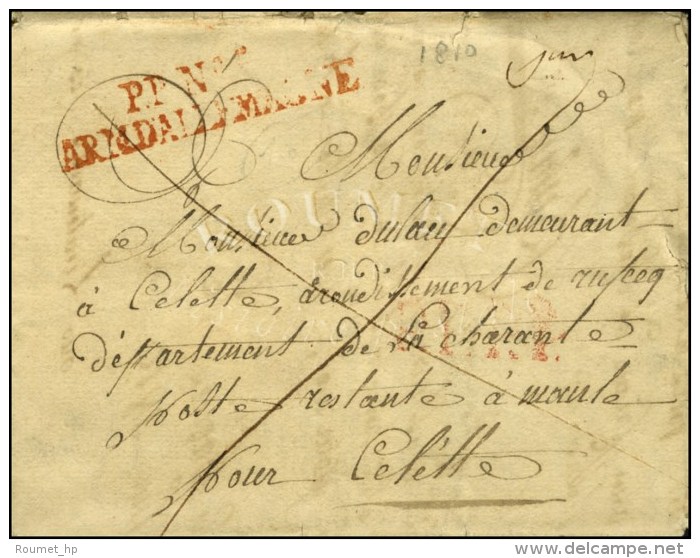 P.P. N°
ARM. D'ALLEMAGNE
1810
Monsieur
Monsieur dulau demeurant
à Celette, aroudissement de rufecq
département de La charante
Poste restante à manle
Pour Celétte
Roumet_hp
© delcampe.net